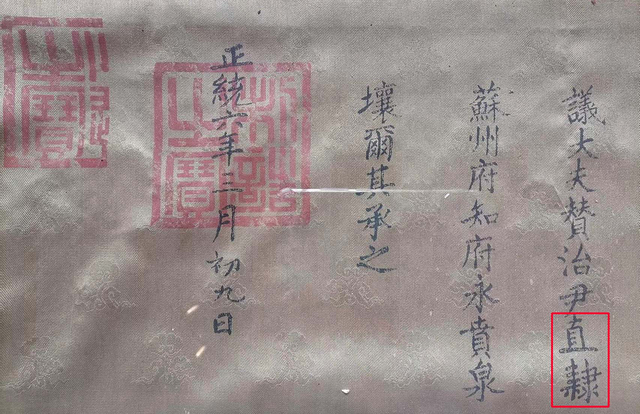 議大夫贊治尹直隸
蘇州府知府永賁泉
壤爾其承之
正統六年三月初九日